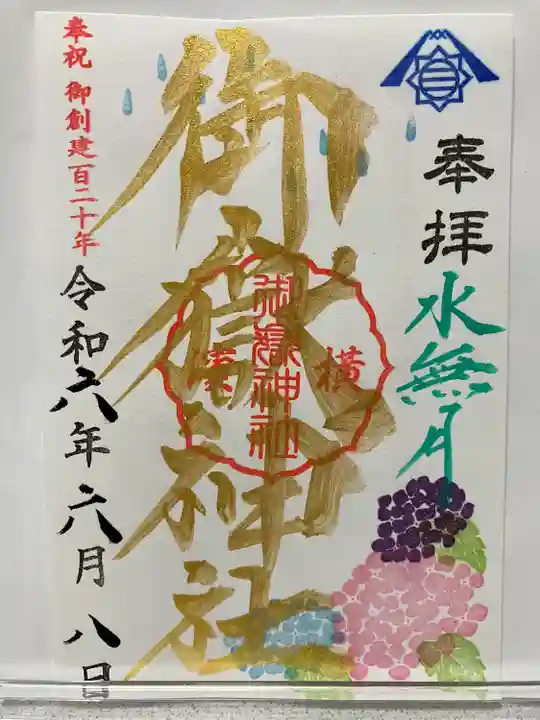 奉拝
水無月
御嶽神社
横濱
御嶽神社
奉祝 御創建百二十年
令和六年六月八日